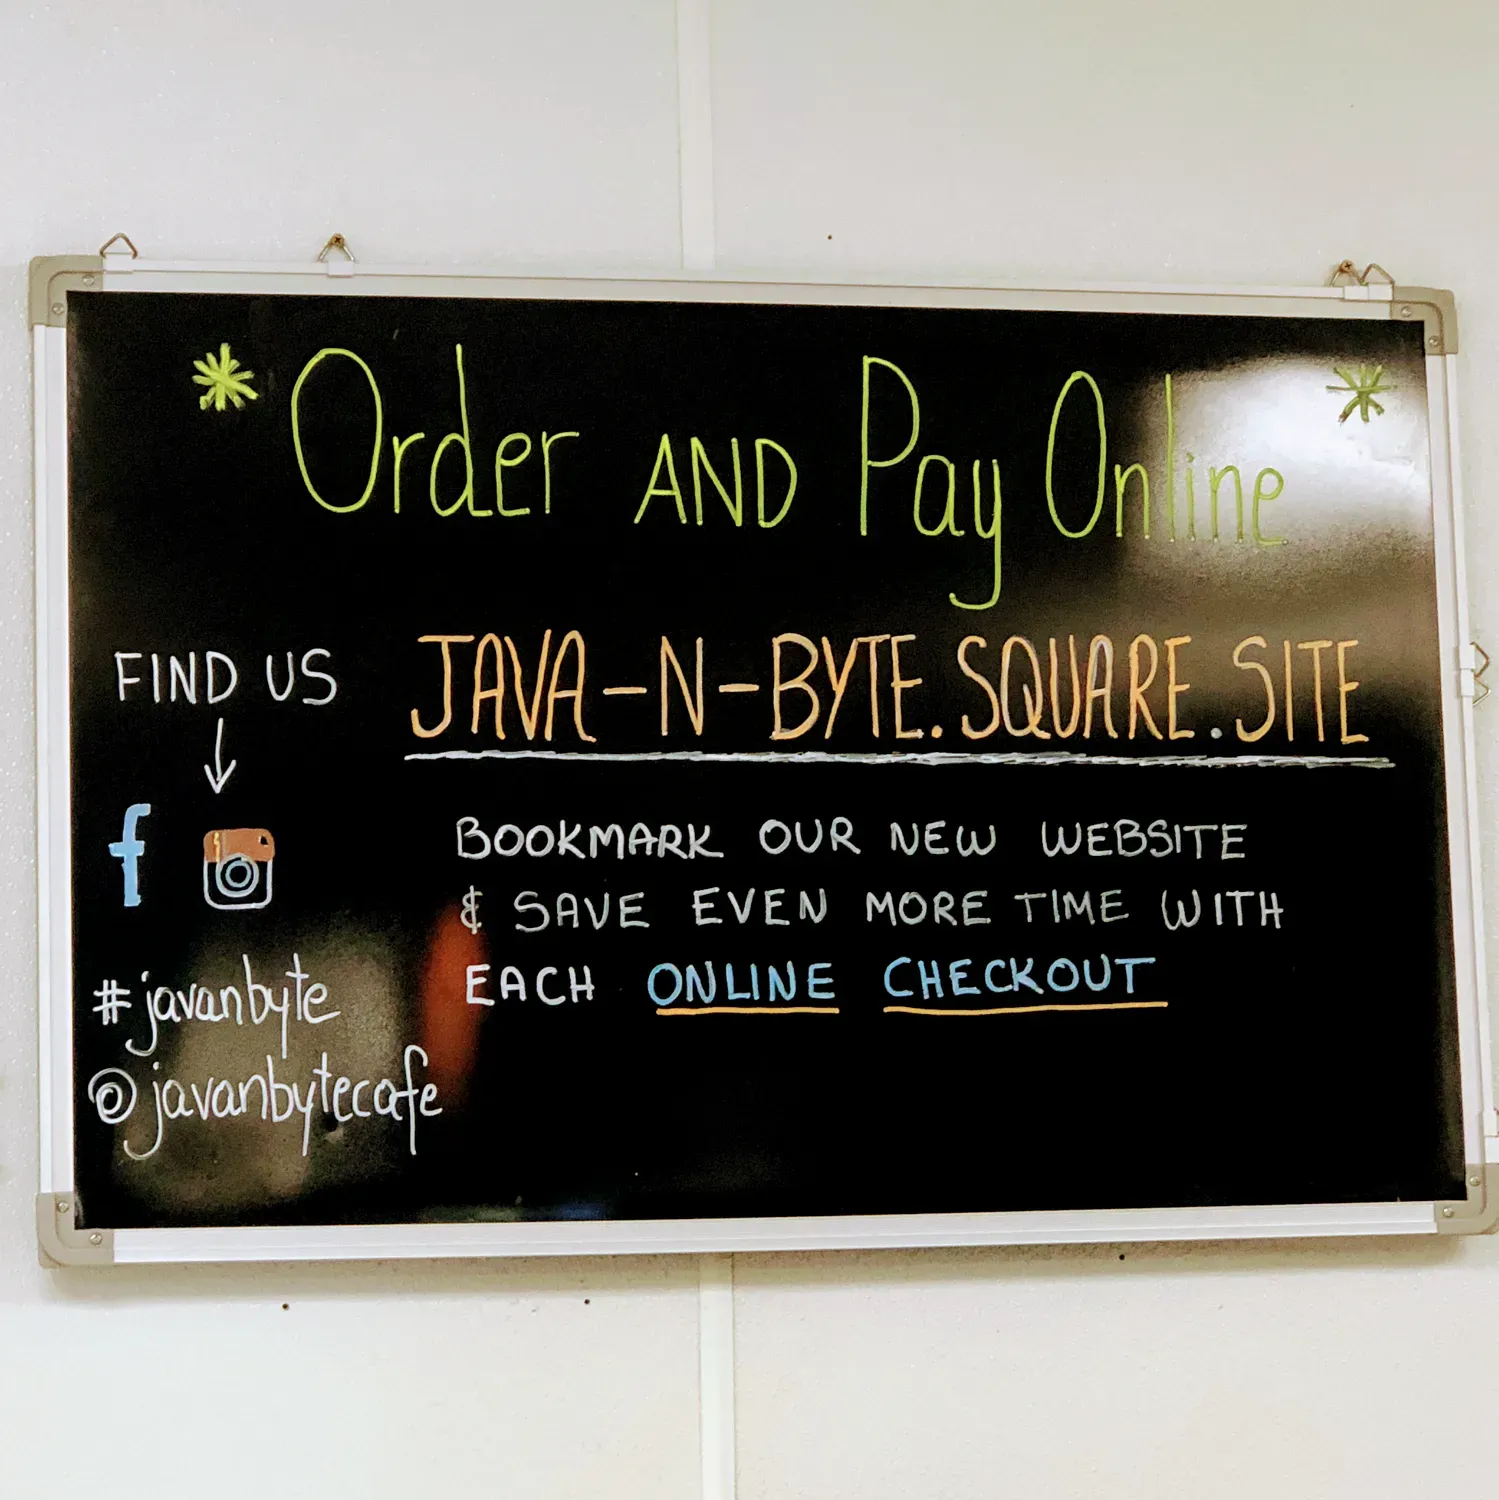 *Order AND Pay Online*
JAVA-N-BYTE.SQUARE.SITE
BOOKMARK OUR NEW WEBSITE
& SAVE EVEN MORE TIME WITH
EACH ONLINE CHECKOUT
FIND US
f
#javanbyte
@javanbytecafe